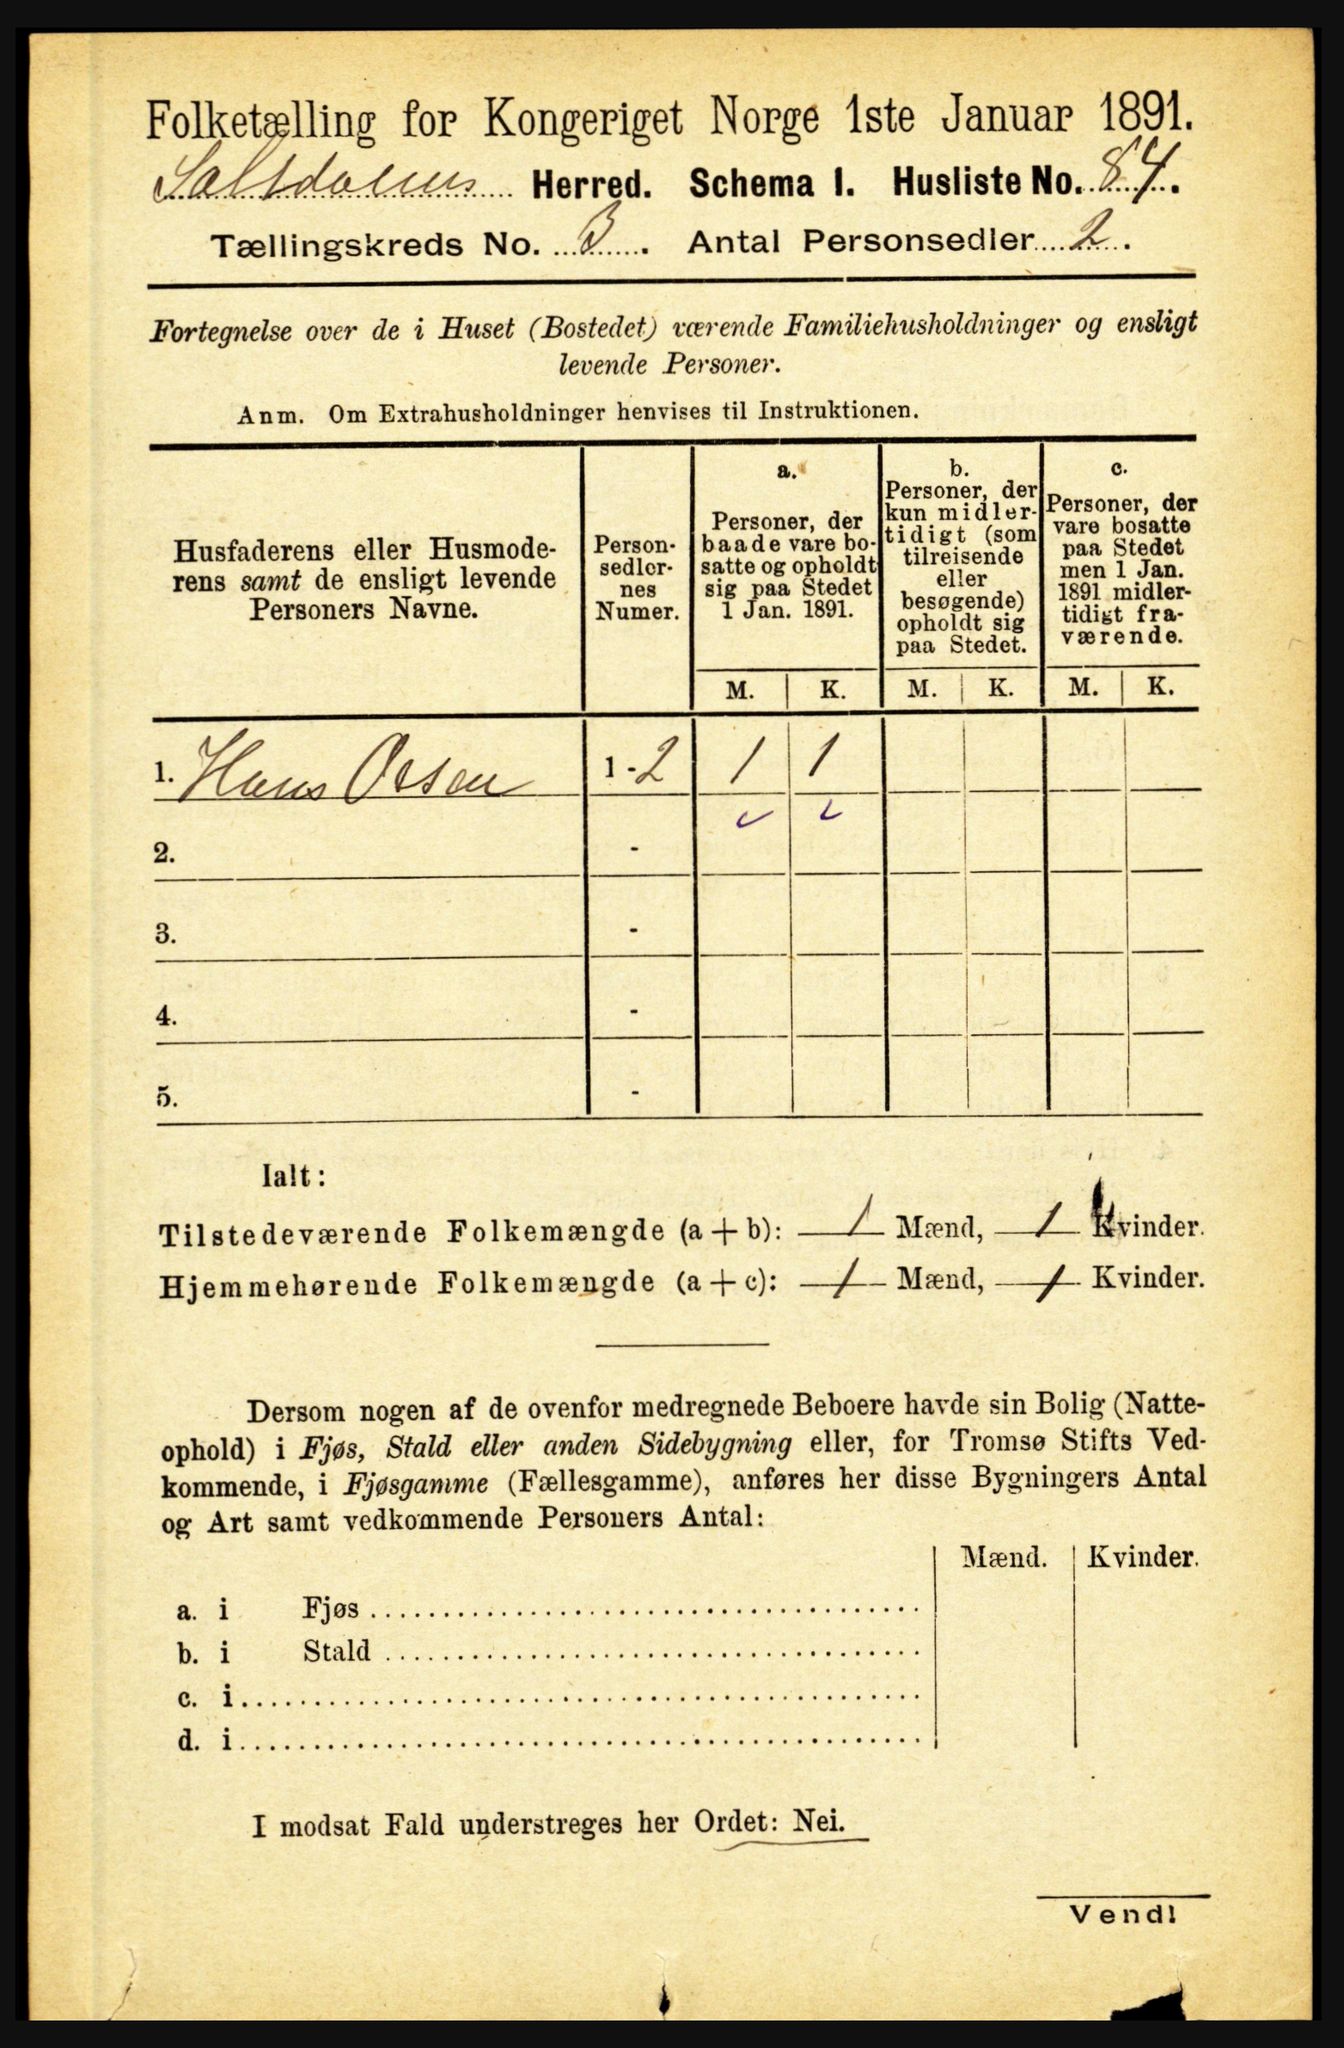 Folketælling for Kongeriget Norge 1ste Januar 1891.
Saltdalens Herred. Schema I. Husliste No. 84.
Tællingskreds No. 3. Antal Personsedler 2.
Fortegnelse over de i Huset (Bostedet) værende Familiehusholdninger og ensligt
levende Personer.
Anm. Om Extrahusholdninger henvises til Instruktionen.
Husfaderens eller Husmode-
rens samt de ensligt levende
Personers Navne.
Person-
sedler-
nes
Numer.
a.
Personer, der
baade vare bo-
satte og opholdt
sig paa Stedet
1 Jan. 1891.
b.
Personer, der
kun midler-
tidigt (som
tilreisende
eller
besøgende)
opholdt sig
paa Stedet.
c.
Personer, der
vare bosatte
paa Stedet
men 1 Jan.
1891 midler-
tidigt fra-
værende.
M. K. M. K. M. K.
1. Hans Olsen 1 - 2 1 1
2. -
3. -
4. -
5. -
Ialt:
Tilstedeværende Folkemængde (a + b): 1 Mænd, 1 Kvinder.
Hjemmehørende Folkemængde (a + c): 1 Mænd, 1 Kvinder.
Dersom nogen af de ovenfor medregnede Beboere havde sin Bolig (Natte-
ophold) i Fjøs, Stald eller anden Sidebygning eller, for Tromsø Stifts Ved-
kommende, i Fjøsgamme (Fællesgamme), anføres her disse Bygningers Antal
og Art samt vedkommende Personers Antal:
Mænd. Kvinder.
a. i Fjøs
b. i Stald
c. i
d. i
I modsat Fald understreges her Ordet: Nei.
Vend!